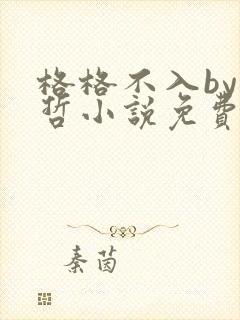 格格不入by
哲小說免費
秦茵